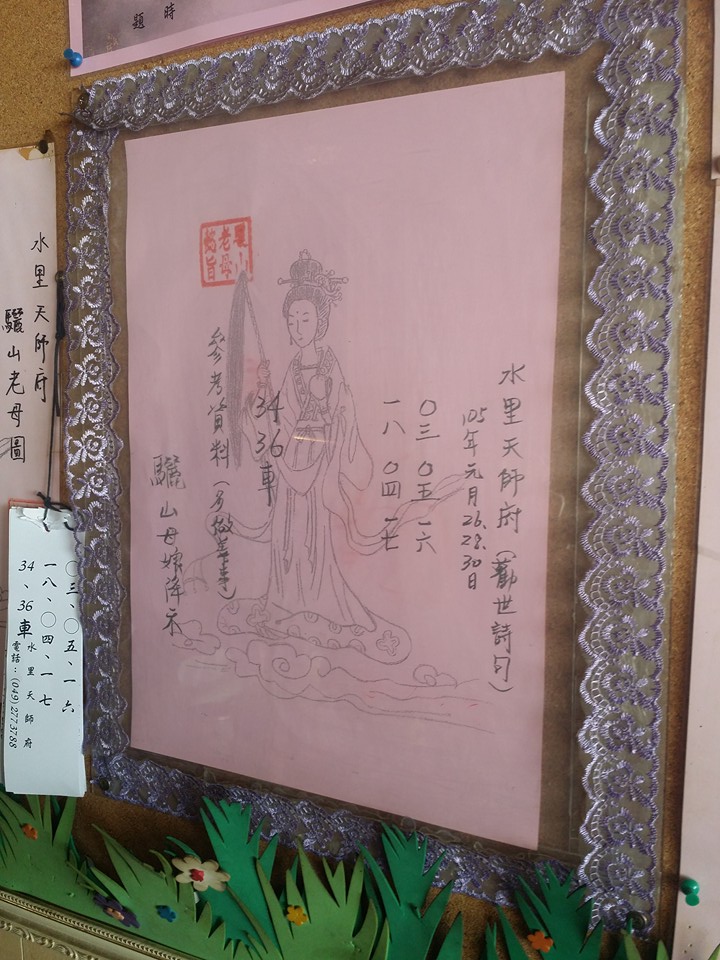 題 時
水里天師府(勸世詩句)
105年元月26.28.30日
〇三 〇五 一六
一八 〇四 一七
34
36
車
參考資料(多做善事)
驪山母娘降示
驪山
老母
懿旨
水里天師府
驪山老母圖
〇三、〇五、一六
一八、〇四、一七
34、36車
水里天師府
電話:(049)2773788